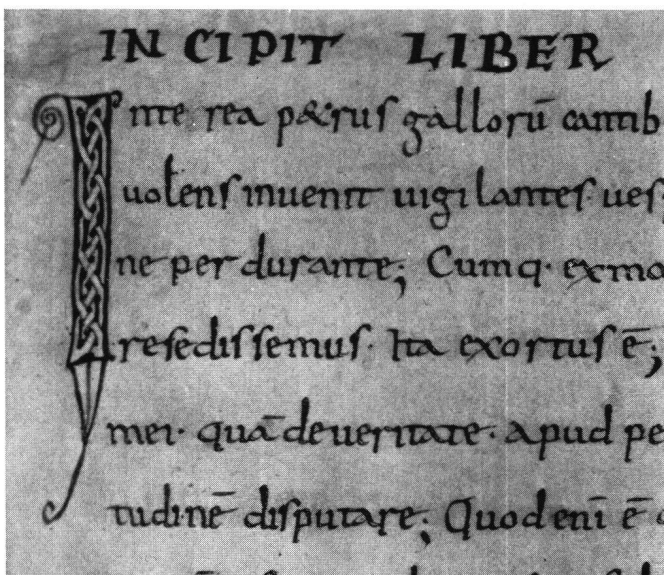 INCIPIT LIBER
Inte rea p&rus gallorū cantib
uolens inuenit uigilantes ues
ne perdurante; Cumq· exmo
resedissemus· Ita exortus ē;
mei· quā deueritate· apud pe
tudinē disputare; Quod enī ē